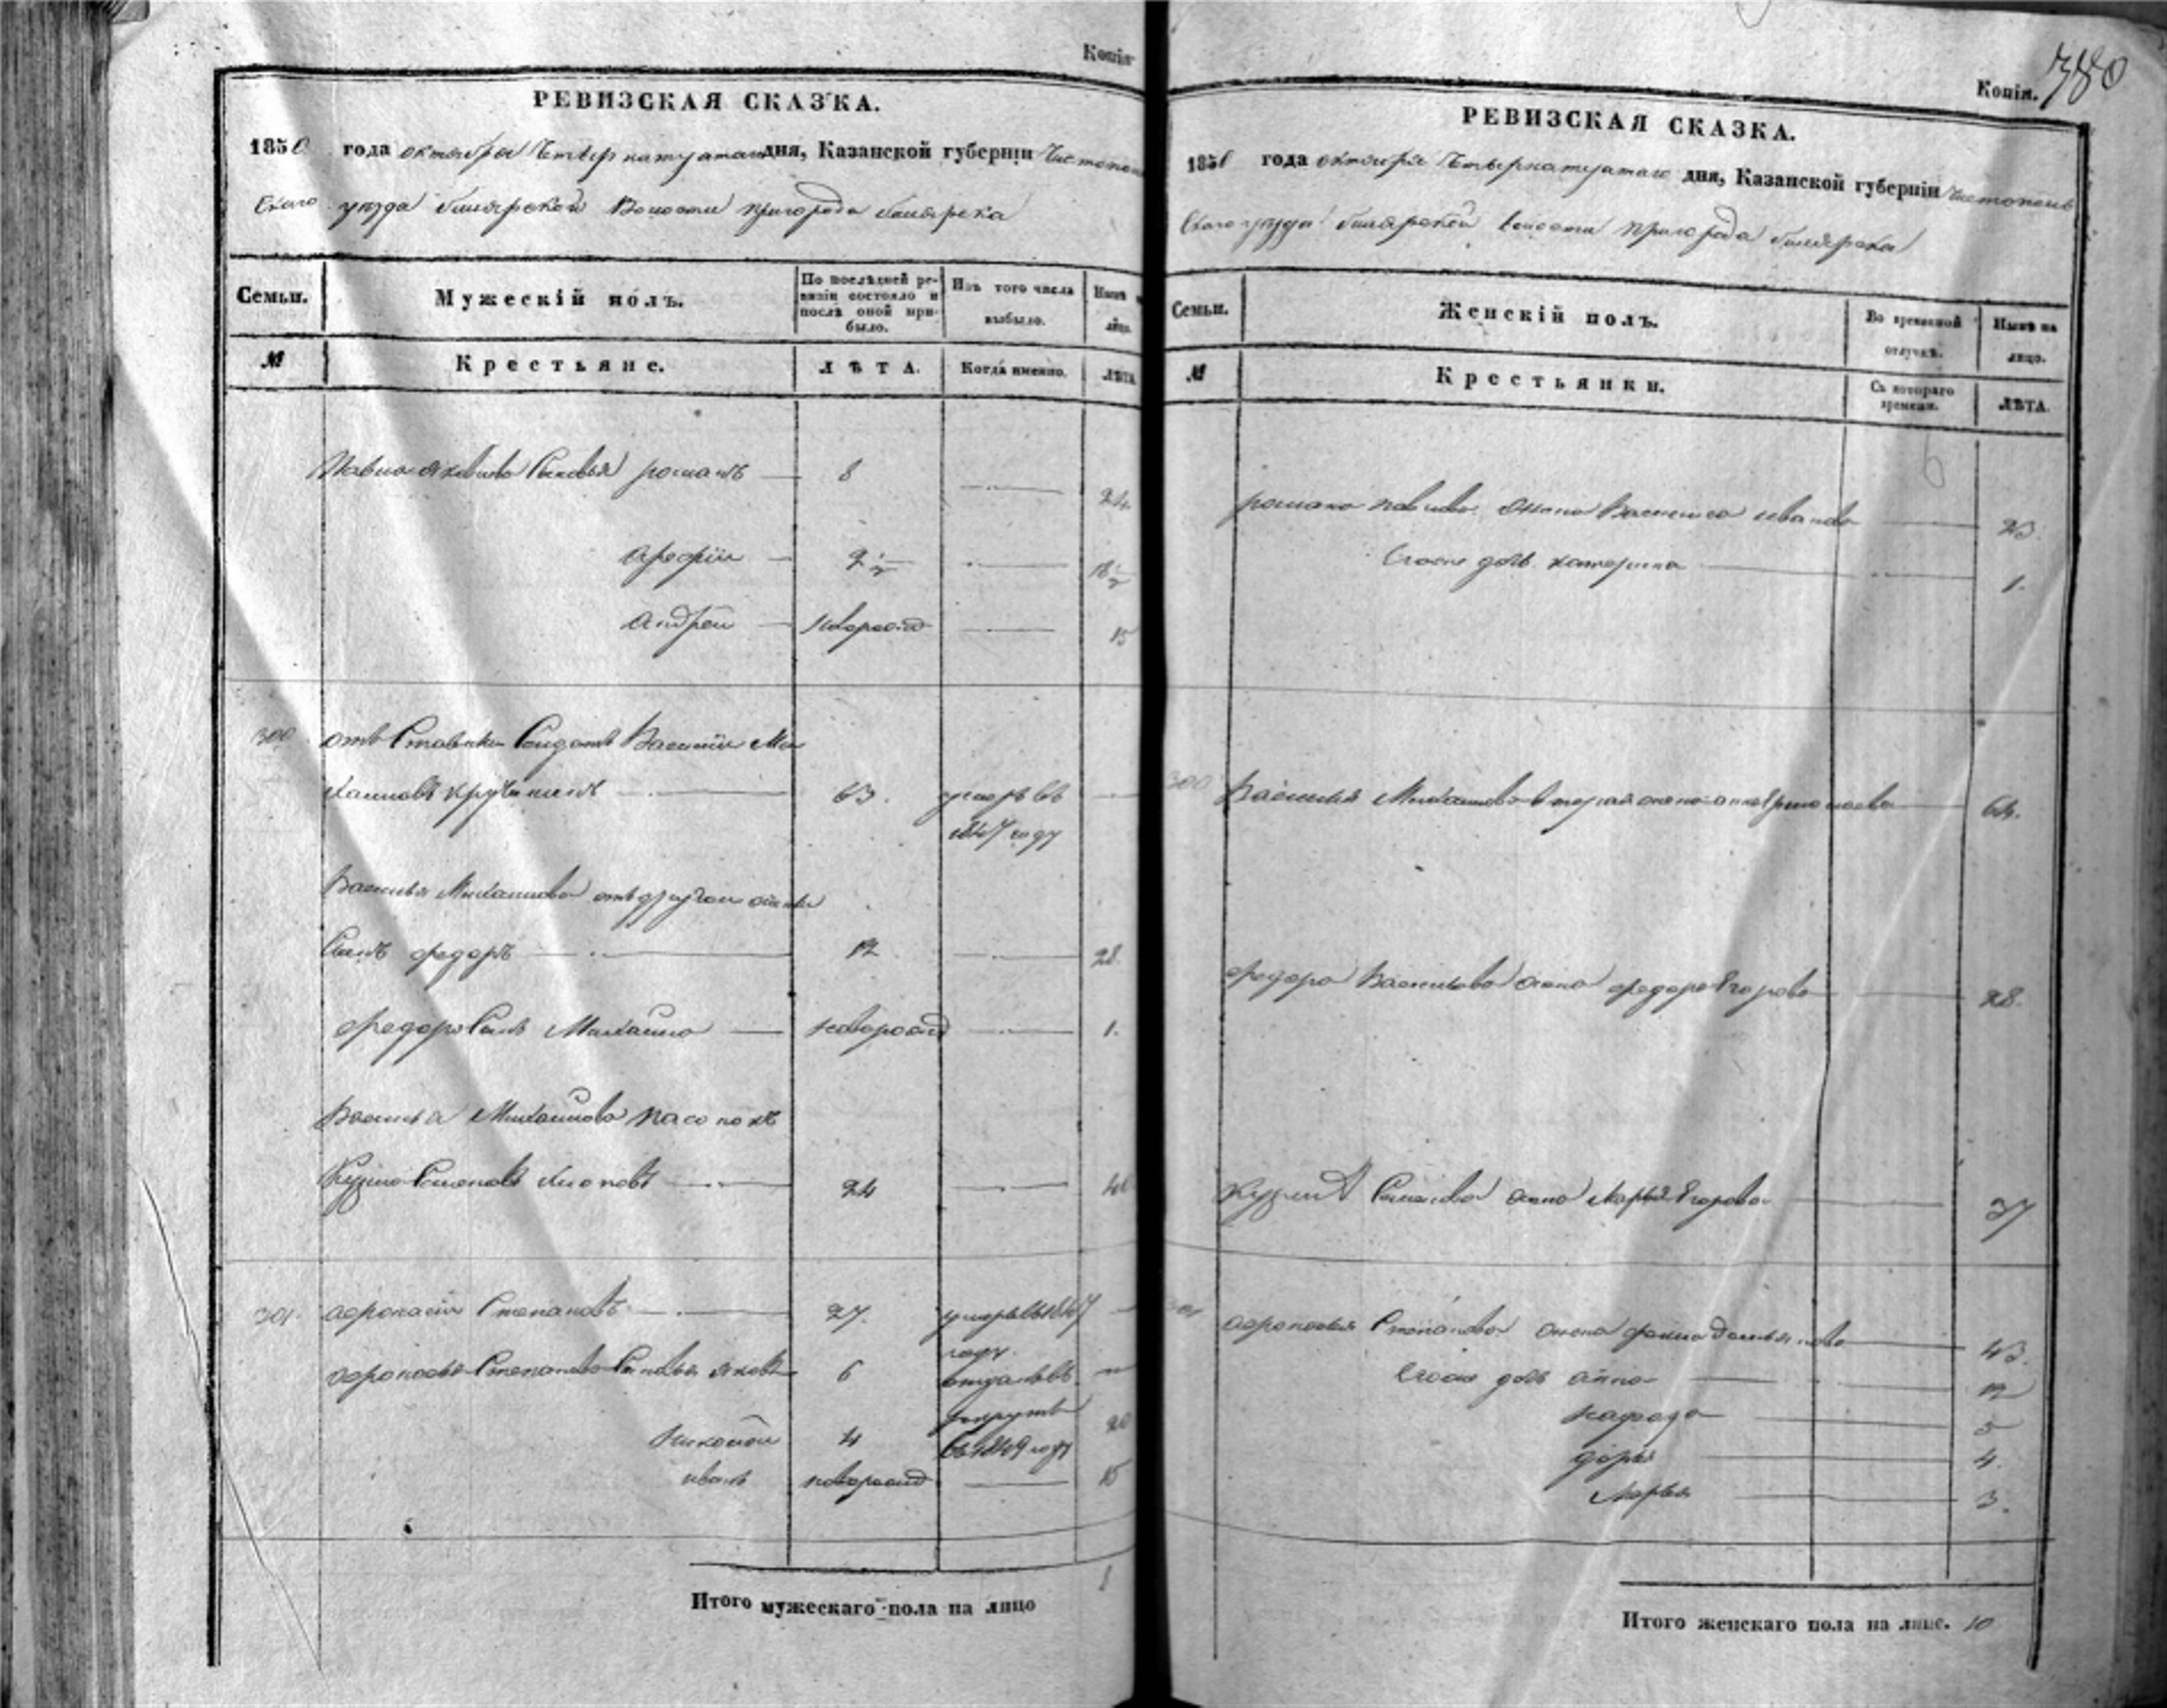 Копія
РЕВИЗСКАЯ СКАЗКА.
1850 года октября дня, Казанской губерніи Чистополь
скаго уезда билярской Волости пригорода билярска
Семьи.
Мужескій полъ.
По послѣдней ре-
визіи состояло и
послѣ оной при-
было.
Изъ того числа
выбыло.
Нынѣ
лицо.
№
Крестьяне.
ЛѢТА.
Когда именно.
ЛѢТА
Павла Яковлева Сыновья романъ 8 24
Арефiй 2 1/2 18 1/2
Андрей новорожд 15
300 отъ Ставной Солдатъ Василiй Ми
хаиловъ 63. умеръ въ
1847 году
Василья Михайлова отъ другой жены
Сынъ федоръ 12 28.
федора Сынъ Михайло новорожд 1.
Василья Михайлова пасонокъ
Кузма Семеновъ 24 40
301. афонасiй Степановъ 27. умеръ въ 1847
году.
афонасья Степанова Сыновья Яковъ 6 отданъ въ
рекруты
Николай 4 въ 1849 году 20
иванъ новорожд 15
Итого мужескаго пола на лицо 8
Копія. 780
РЕВИЗСКАЯ СКАЗКА.
1850 года октября дня, Казанской губерніи Чистополь
скаго уезда билярской Волости пригорода билярска
Семьи.
Женскій полъ.
Во временной
отлучкѣ.
Нынѣ на
лицо.
№
Крестьянки.
Съ котораго
времени.
ЛѢТА.
романа павлова жена Василиса иванова 23
Егоже дочь катерина 1.
300 Василья Михайлова вторая жена анна 64.
федора Васильева жена федора Егорова 28.
Кузмы Семенова жена Марья Егорова 37
301 афонасья Степанова жена фекла Демьянова 43.
Егоже дочь анна 12
5
дарья 4.
Марья 3.
Итого женскаго пола на лице. 10